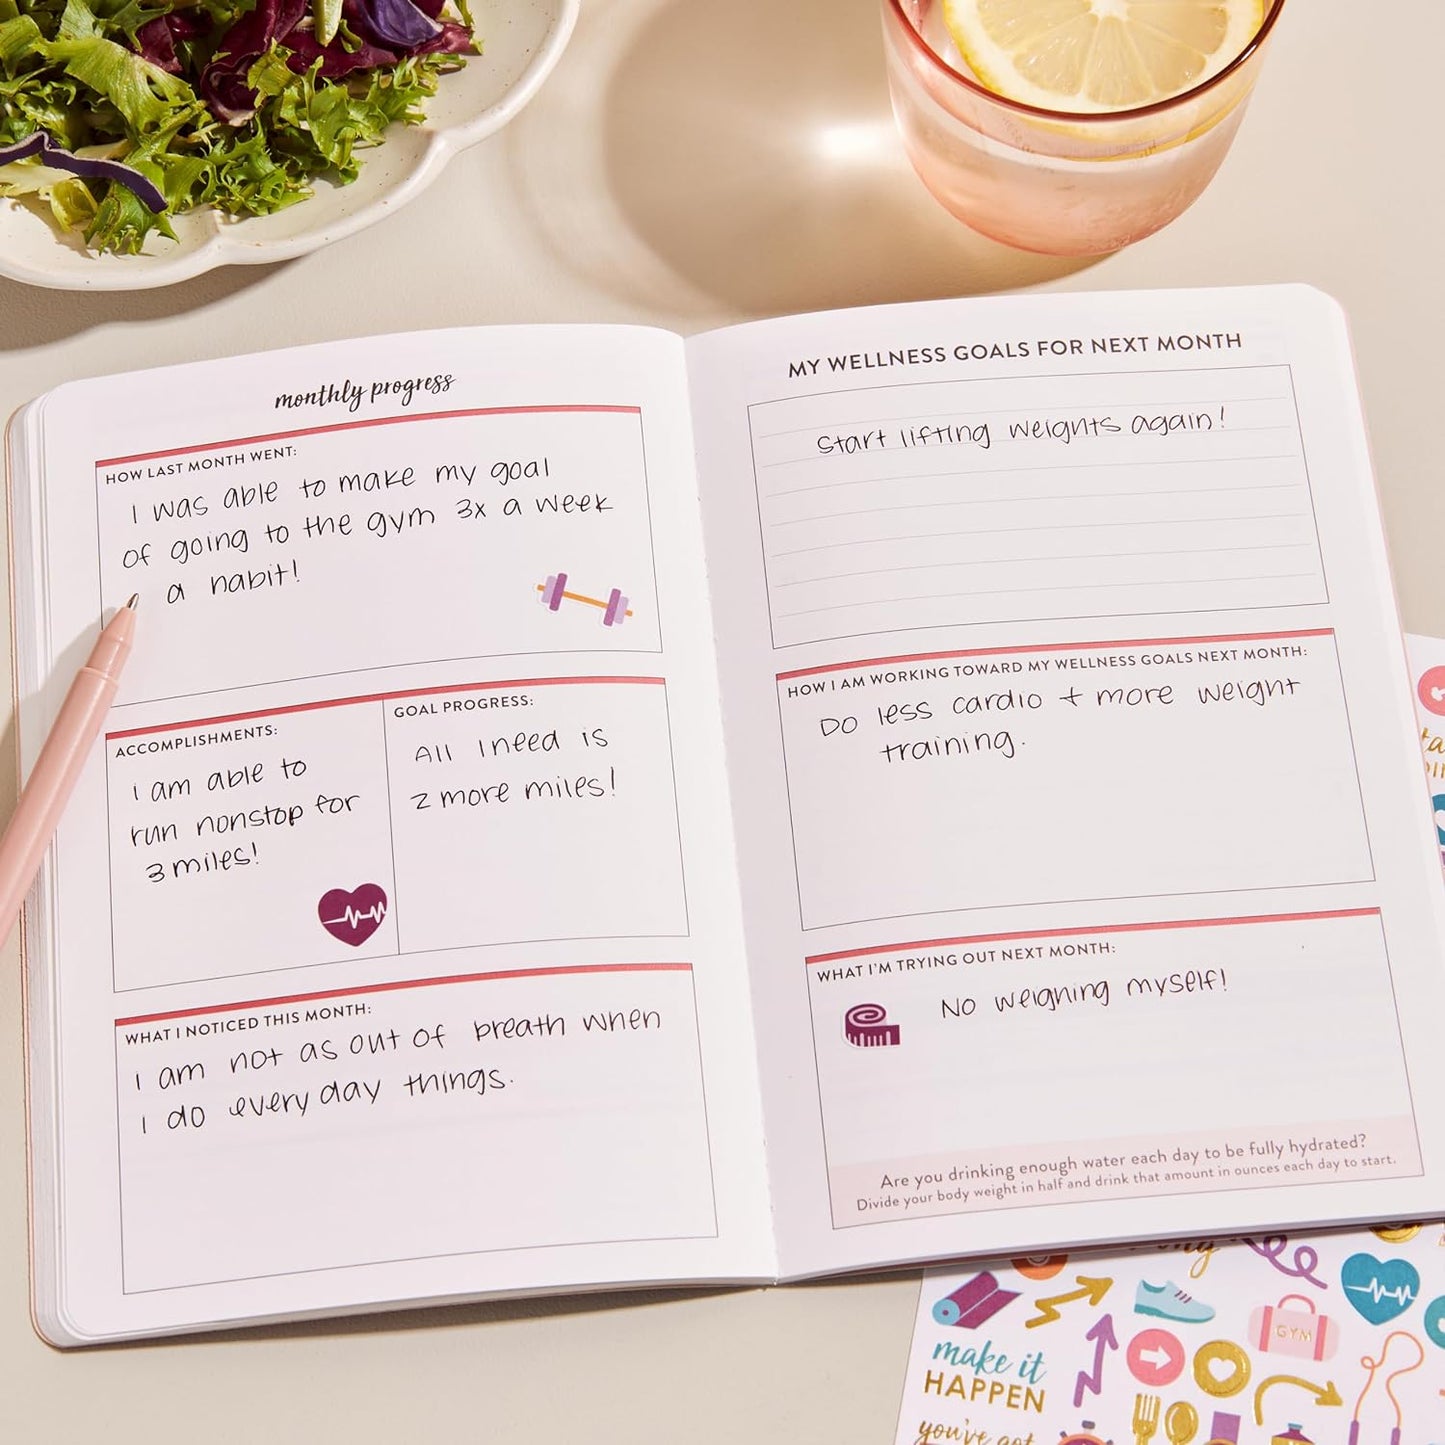 monthly progress
HOW LAST MONTH WENT:
I was able to make my goal
of going to the gym 3x a week
a habit!
ACCOMPLISHMENTS:
I am able to
run nonstop for
3 miles!
GOAL PROGRESS:
All I need is
2 more miles!
WHAT I NOTICED THIS MONTH:
I am not as out of breath when
I do everyday things.
MY WELLNESS GOALS FOR NEXT MONTH
Start lifting weights again!
HOW I AM WORKING TOWARD MY WELLNESS GOALS NEXT MONTH:
Do less cardio + more weight
training.
WHAT I'M TRYING OUT NEXT MONTH:
No weighing myself!
Are you drinking enough water each day to be fully hydrated?
Divide your body weight in half and drink that amount in ounces each day to start.
make it
HAPPEN
you've got
GYM